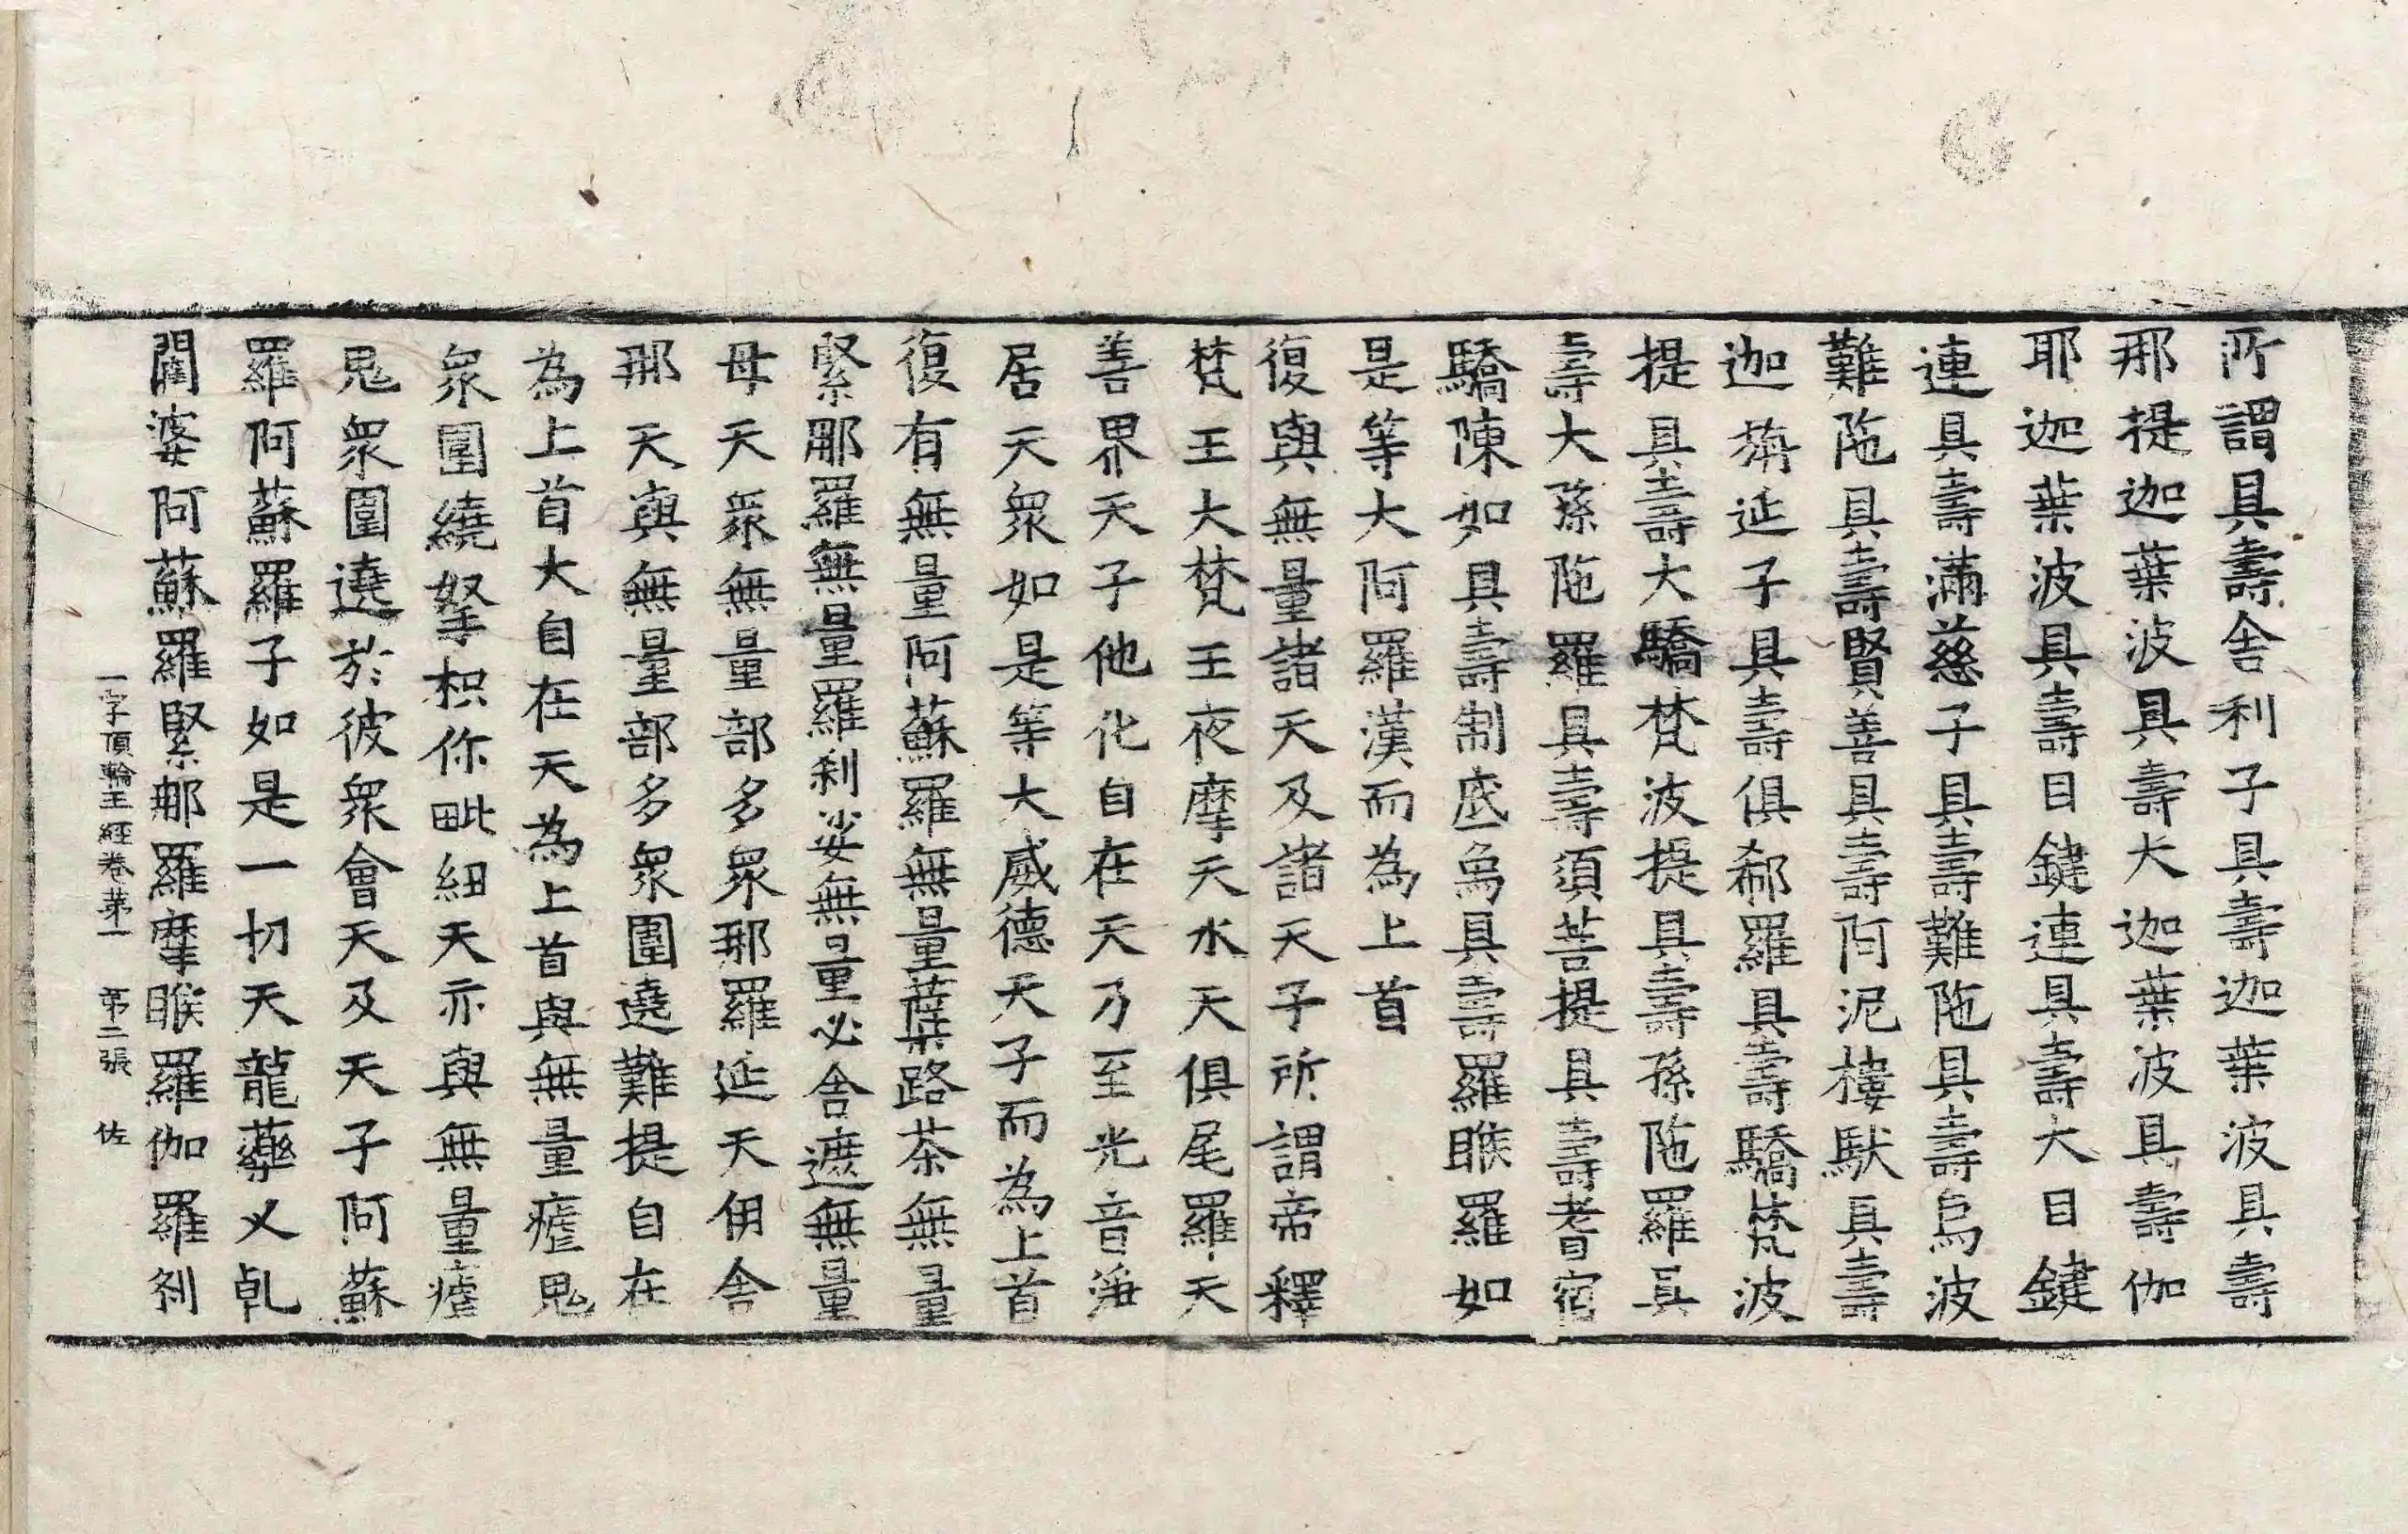 所謂具壽舍利子具壽迦葉波具壽
那提迦葉波具壽大迦葉波具壽伽
耶迦葉波具壽目鍵連具壽大目鍵
連具壽滿慈子具壽難陁具壽烏波
難陁具壽賢善具壽阿泥樓馱具壽
迦旃延子具壽俱郗羅具壽驕梵波
提具壽大驕梵波提具壽孫陁羅具
壽大孫陁羅具壽須菩提具壽耆宿
驕陳如具壽制底烏具壽羅睺羅如
是等大阿羅漢而為上首
復與無量諸天及諸天子所謂帝釋
梵王大梵王夜摩天水天俱尾羅天
善界天子他化自在天乃至光音淨
居天衆如是等大威德天子而為上首
復有無量阿蘇羅無量蘗路茶無量
緊那羅無量羅剎娑無量必舍遮無量
母天衆無量部多衆那羅延天毋舍
那天與無量部多衆圍遶難提自在
為上首大自在天為上首與無量瘧鬼
衆圍繞拏枳你毗紐天亦與無量瘧
鬼衆圍遶於彼衆會天及天子阿蘇
羅阿蘇羅子如是一切天龍藥叉乹
闥婆阿蘇羅緊那羅摩睺羅伽羅刹
一字頂輪王經卷苐一 第二張 佐